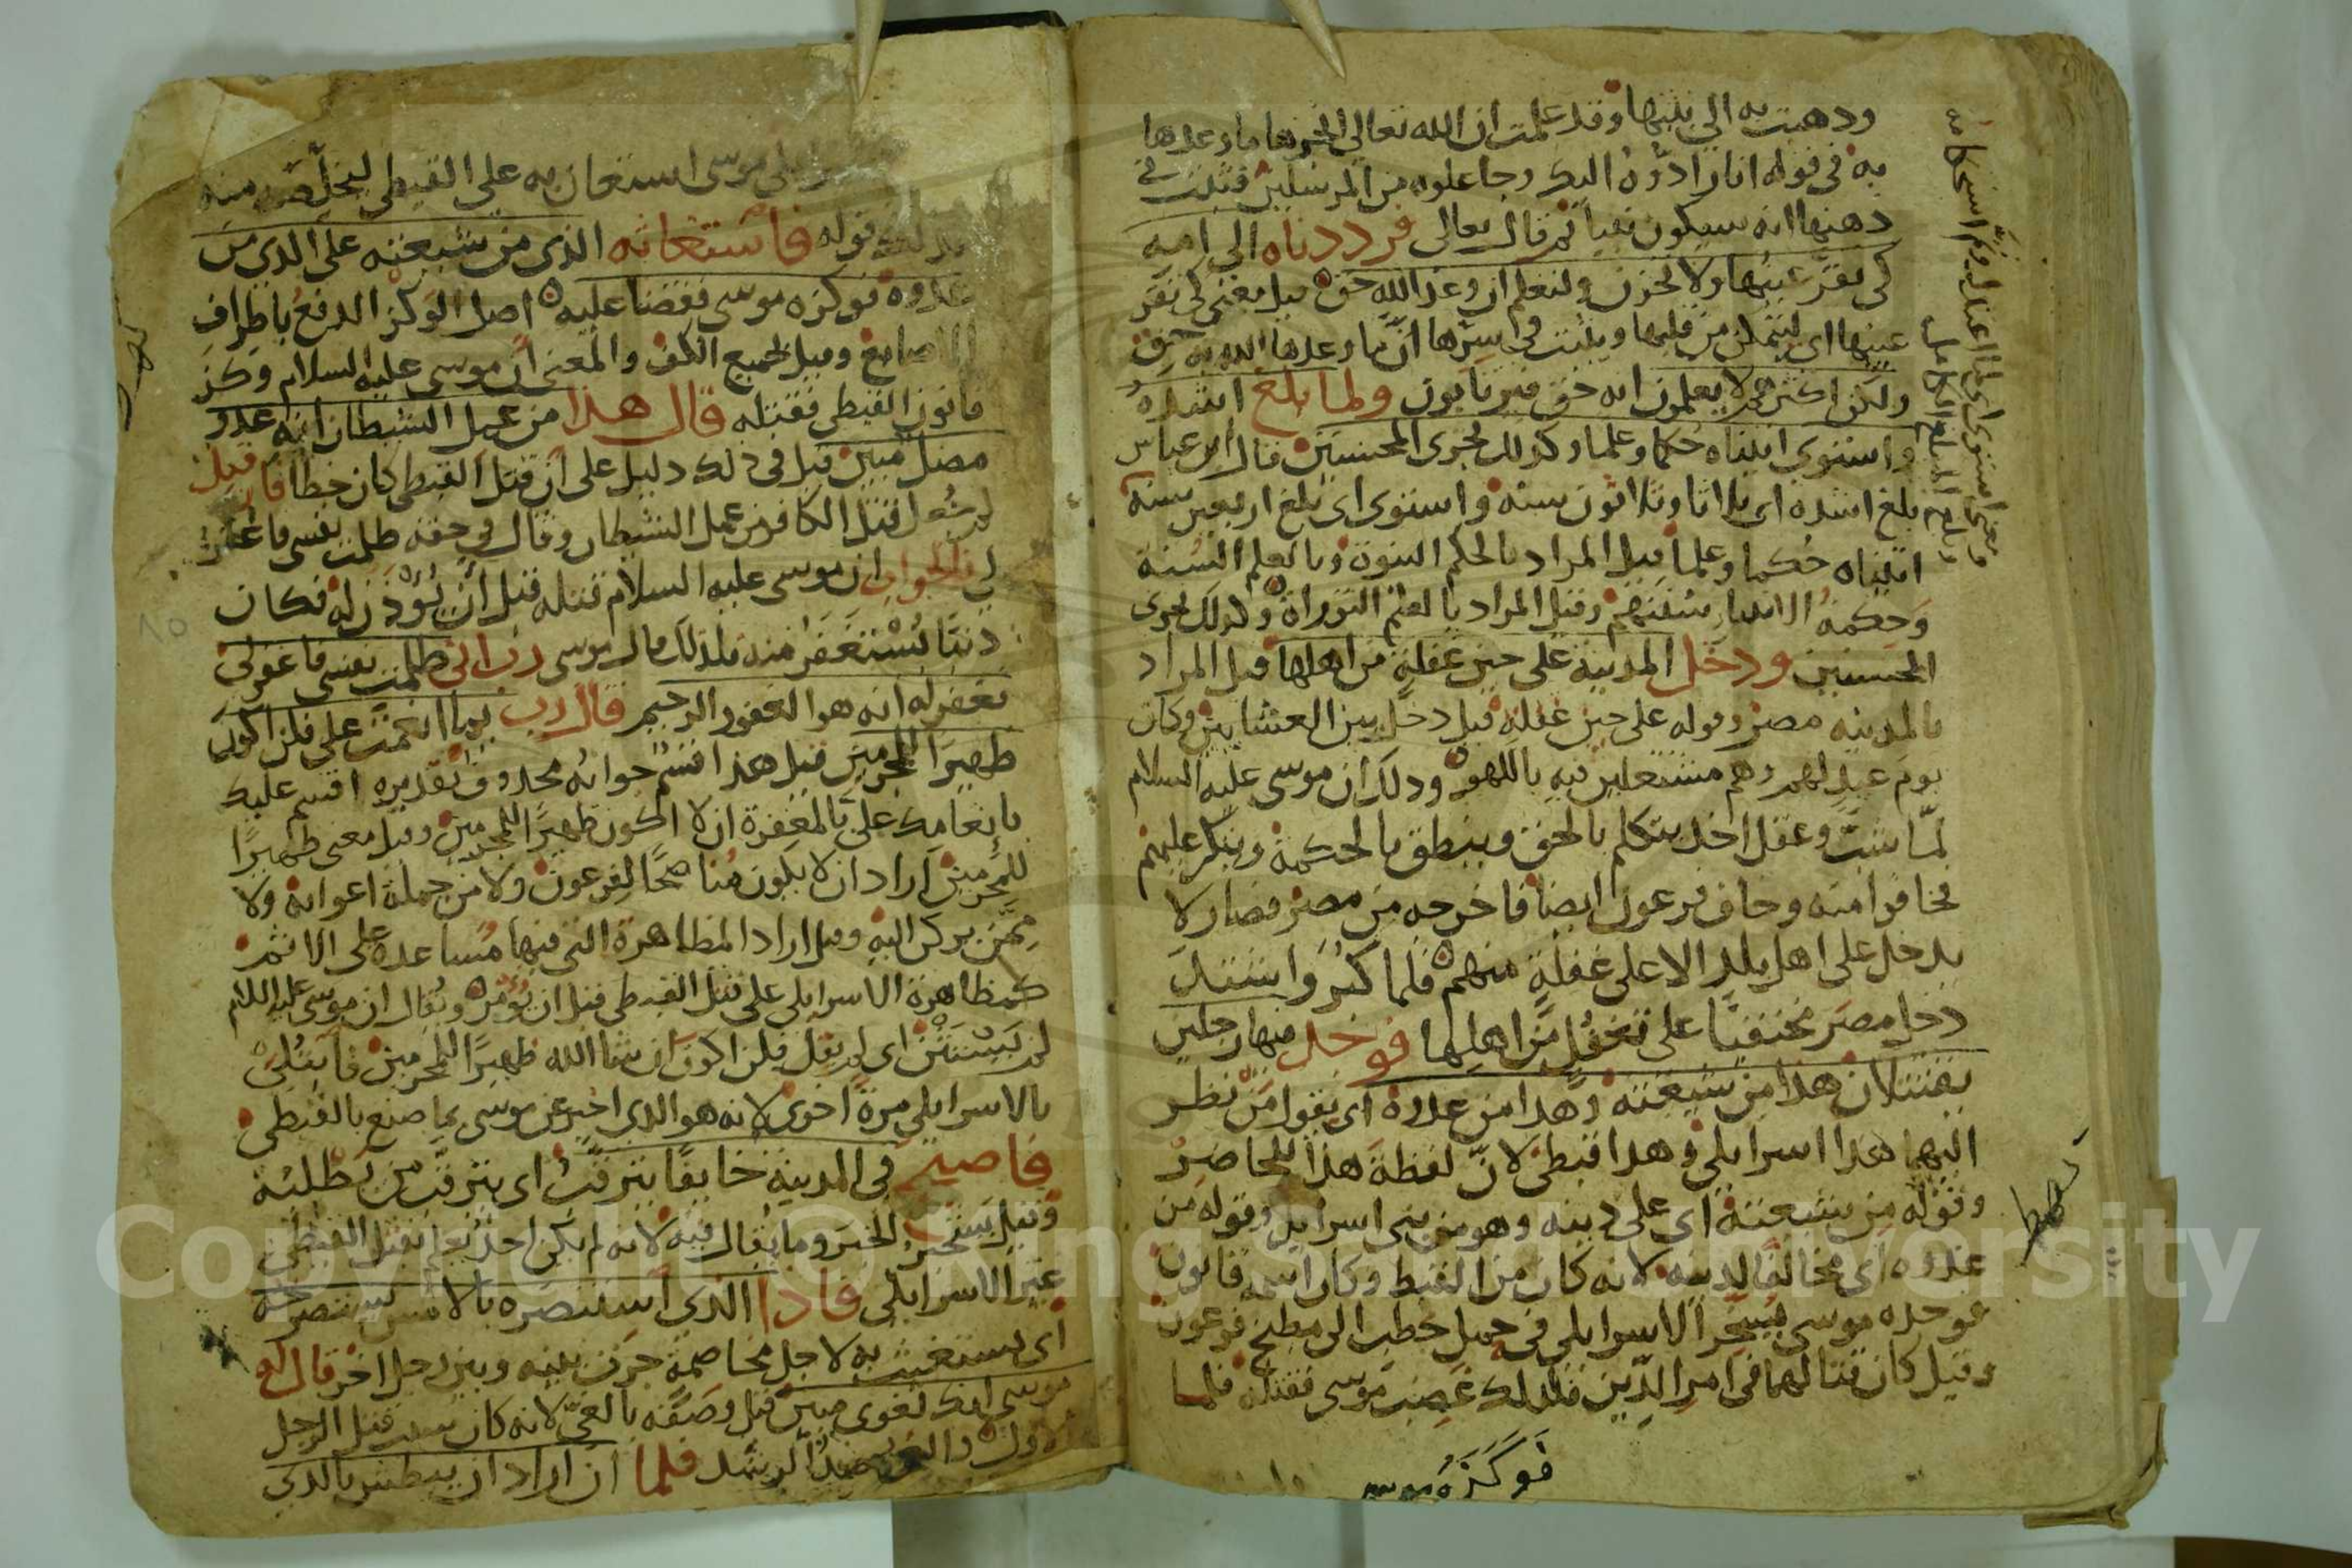 ودهبت به الي بيتها وقد علمت ان الله تعالي انجزها ما وعدها
به في قوله انا رادوه اليك وجاعلوه من المرسلين فثبت في
دهنها انه سيكون نبيا ثم قال تعالى فرددناه الي امه
كي تقر عينها ولا تحزن ولتعلم ان وعد الله حق قيل معني كي تقر
عينها اي ليتمكن من قلبها ويثبت في سرها ان ما وعدها الله به حق
ولكن اكثرهم لا يعلمون انه حق فيرتابون ولما بلغ اشده
واستوي اتيناه حكما وعلما وكدلك نجزي المحسنين قال ابن عباس
بلغ اشده اي ثلاثا وثلاثون سنة واستوي اي بلغ اربعين سنة
اتيناه حكما وعلما قيل المراد بالحكم النبوة وبالعلم السنة
وحكمة الانبيا سنتهم وقيل المراد بالعلم التوراة وكدلك نجزي
المحسنين ودخل المدينة على حين غفلة من اهلها قيل المراد
بالمدينه مصر وقوله على حين غفلة قيل دخل بين العشايين وكان
يوم عيد لهم وهم مشتغلين فيه باللهو ودلك ان موسى عليه السلام
لما شب وعقل اخد يتكلم بالحق وينطق بالحكمة وينكر عليهم
فخافوا منه وخاف فرعون ايضا فاخرجه من مصر فصار لا
يدخل على اهل بلد الا على غفلة منهم فلما كبر واشتد
دخل مصر مختفيا على تغفل من اهلها فوجد فيها رجلين
يقتتلان هدا من شيعته وهدا من عدوه اي يقول من نظر
اليهما هدا اسرايلي وهدا قبطي لان لفظة هدا للحاضر
وقوله من شيعته اي على دينه وهو من بني اسرايل وقوله من
عدوه اي مخالفا لدينه لانه كان من القبط وكان اسمه قانون
فوجده موسى يسخر الاسرايلي في حمل حطب الى مطبخ فرعون
وقيل كان قتالهما في امر الدين فلدلك غضب موسى فقتله فلما
فوكزه موسى
موسى استعان به على القبطي ليخلصه منه
قوله فاستغاثه الذي من شيعته على الذي من
عدوه فوكزه موسى فقضا عليه اصل الوكز الدفع باطراف
الاصابع وقيل بجميع الكف والمعنى ان موسى عليه السلام وكز
قانون القبطي فقتله قال هدا من عمل الشيطان انه عدو
مضل مبين قيل في دلك دليل على ان قتل القبطي كان خطا فان قيل
لم جعل قتل الكافر من عمل الشيطان وقال في حقه ظلمت نفسي فاغفر
لي فالجواب ان موسى عليه السلام قتله قبل ان يؤذن له فكان
دنبا يستغفر منه فلدلك قال موسى رب اني ظلمت نفسي فاغفر لي
فغفر له انه هو الغفور الرحيم قال رب بما انعمت علي فلن اكون
ظهيرا للمجرمين قيل هدا قسم جوابه محدوف تقديره اقسم عليك
بانعامك علي بالمغفرة ان لا اكون ظهيرا للمجرمين وقيل معنى ظهيرا
للمجرمين اراد ان لا يكون مناصحا لفرعون ولا من جملة اعوانه ولا
ممن يركن اليه وقيل اراد المظاهرة التي فيها مساعدة على الاثم
كمظاهرة الاسرايلي على قتل القبطي قبل ان يؤمر ويقال ان موسى عليه السلام
لم يستثن اي لم يقل فلن اكون ان شا الله ظهيرا للمجرمين فابتلي
بالاسرايلي مرة اخرى لانه هو الدي اخبر عن موسى بما صنع بالقبطي
فاصبح في المدينة خايفا يترقب اي يترقب من يطلبه
وقيل يستخبر الخبر وما يقال فيه لانه لم يكن احد يعلم بقتل القبطي
غير الاسرايلي فادا الذي استنصره بالامس يستصرخه
اي يستغيث به لاجل مخاصمة جرت بينه وبين رجل اخر قال له
موسى انك لغوي مبين قيل وصفه بالغي لانه كان سبب قتل الرجل
الاول والغي ضد الرشد فلما ان اراد ان يبطش بالدي